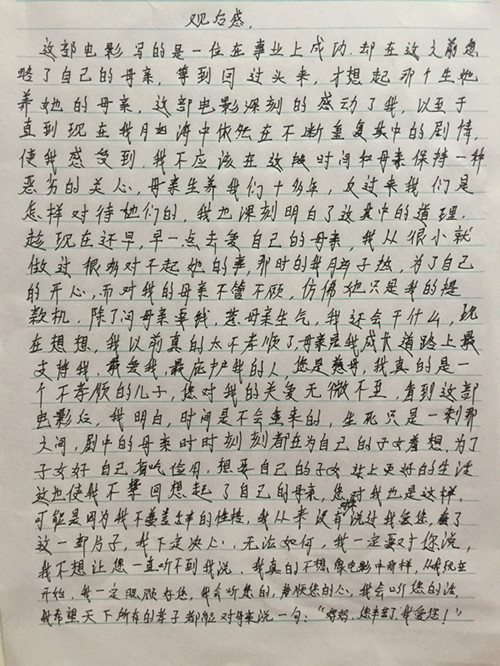 观后感.
这部电影写的是一位在事业上成功.却在这之前忽
略了自己的母亲,等到回过头来,才想起那个生她
养她的母亲,这部电影深刻的感动了我,以至于
直到现在我脑海中依然在不断重复其中的剧情,
使我感受到,我不应该在这段时间和母亲保持一种
恶劣的关心,母亲生养我们十多年,反过来我们是
怎样对待她们的,我也深刻明白了这其中的道理.
趁现在还早,早一点去爱自己的母亲,我从很小就
做过很多对不起她的事,那时的我脑子热,为了自己
的开心,而对我的母亲不管不顾,仿佛她只是我的提
款机,除了问母亲要钱,惹母亲生气,我还会干什么,现
在想想,我以前真的太不孝顺了,母亲是我成长道路上最
支持我,最爱我,最庇护我的人,您是慈母,我真的是一
个不孝顺的儿子,您对我的关爱无微不至,看到这部
电影后,我明白,时间是不会重来的,生死只是一刹那
之间,剧中的母亲时时刻刻都在为自己的子女着想,为了
子女好自己省吃俭用,想要自己的子女 过上更好的生活
这也使我不禁回想起了自己的母亲,您对我也是这样,
可能是因为我不善言的性格,我从来没有说过我爱您,看了
这一部片子,我下定决心,无论如何,我一定要对你说,
我不想让您一直听不到我说,我真的不想像电影中那样,从现在
开始,我一定照顾好您,我会听您的,孝顺您的心,我会听您的话,
我希望天下所有的孝子都能对母亲说一句:"妈妈,您辛苦了,我爱您!"